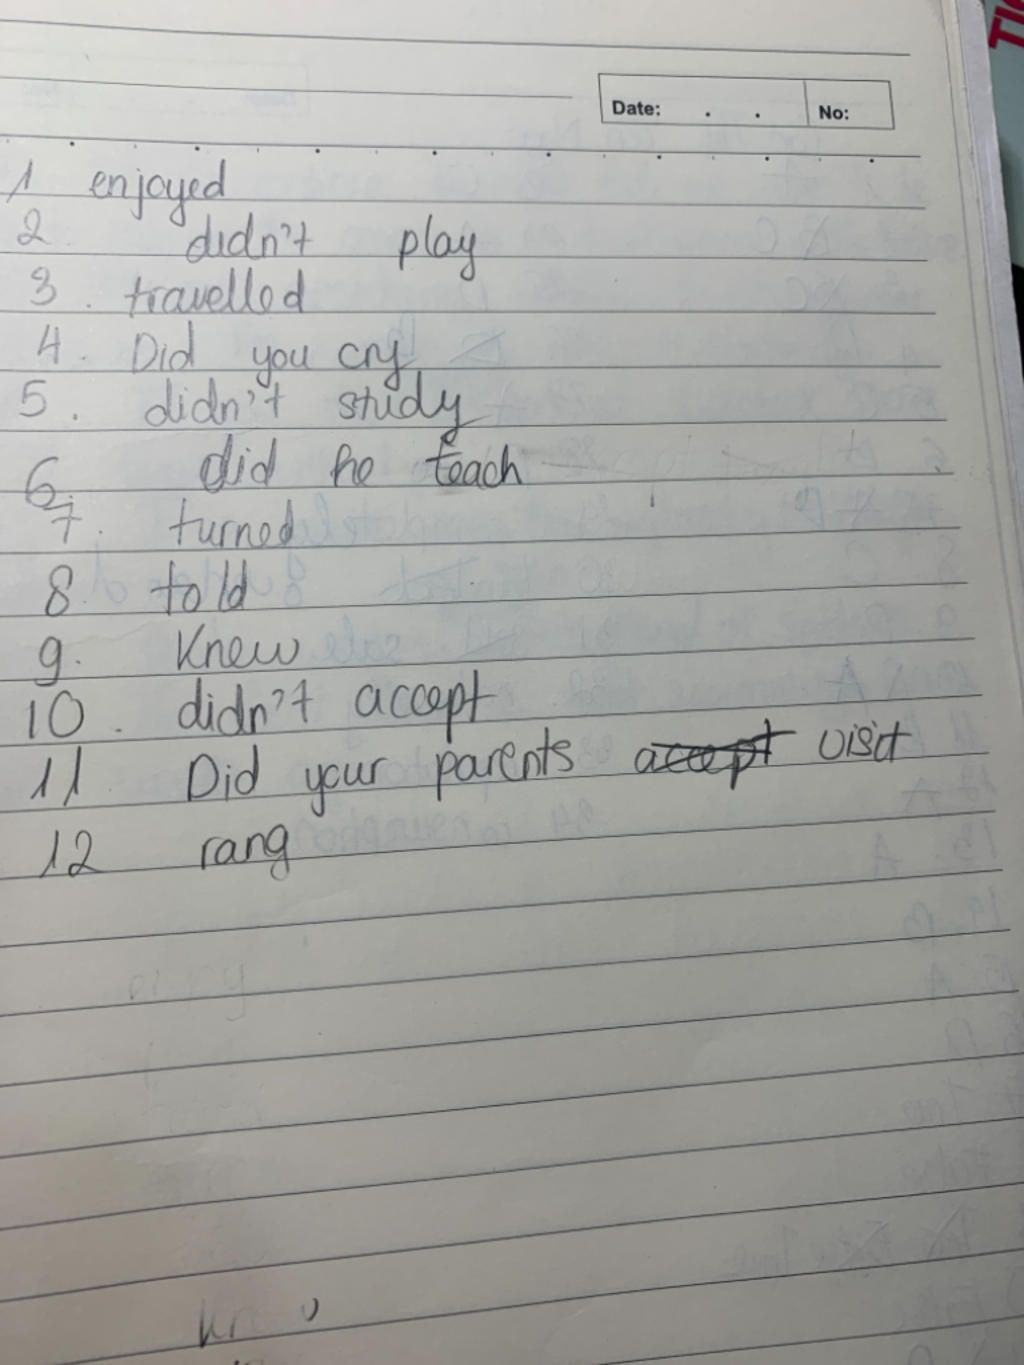 Date: . . No:
1 enjoyed
2. didn't play
3. travelled
4. Did you cry
5. didn't study
6. did he teach
7. turned
8. told
9. Knew
10. didn't accept
11 Did your parents accept visit
12 rang